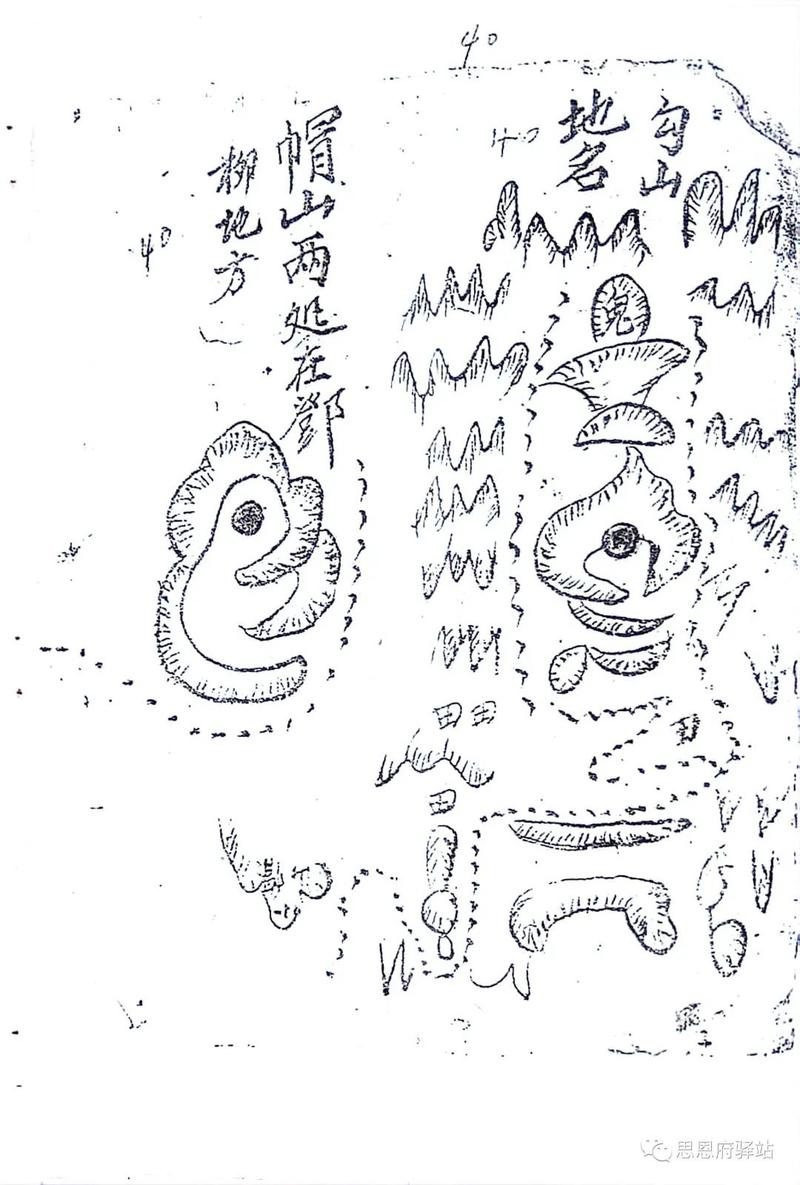 40
40
勾山
地名
帽山两处在鄧
柳地方
40
兜
田
田
田
田
思恩府驿站